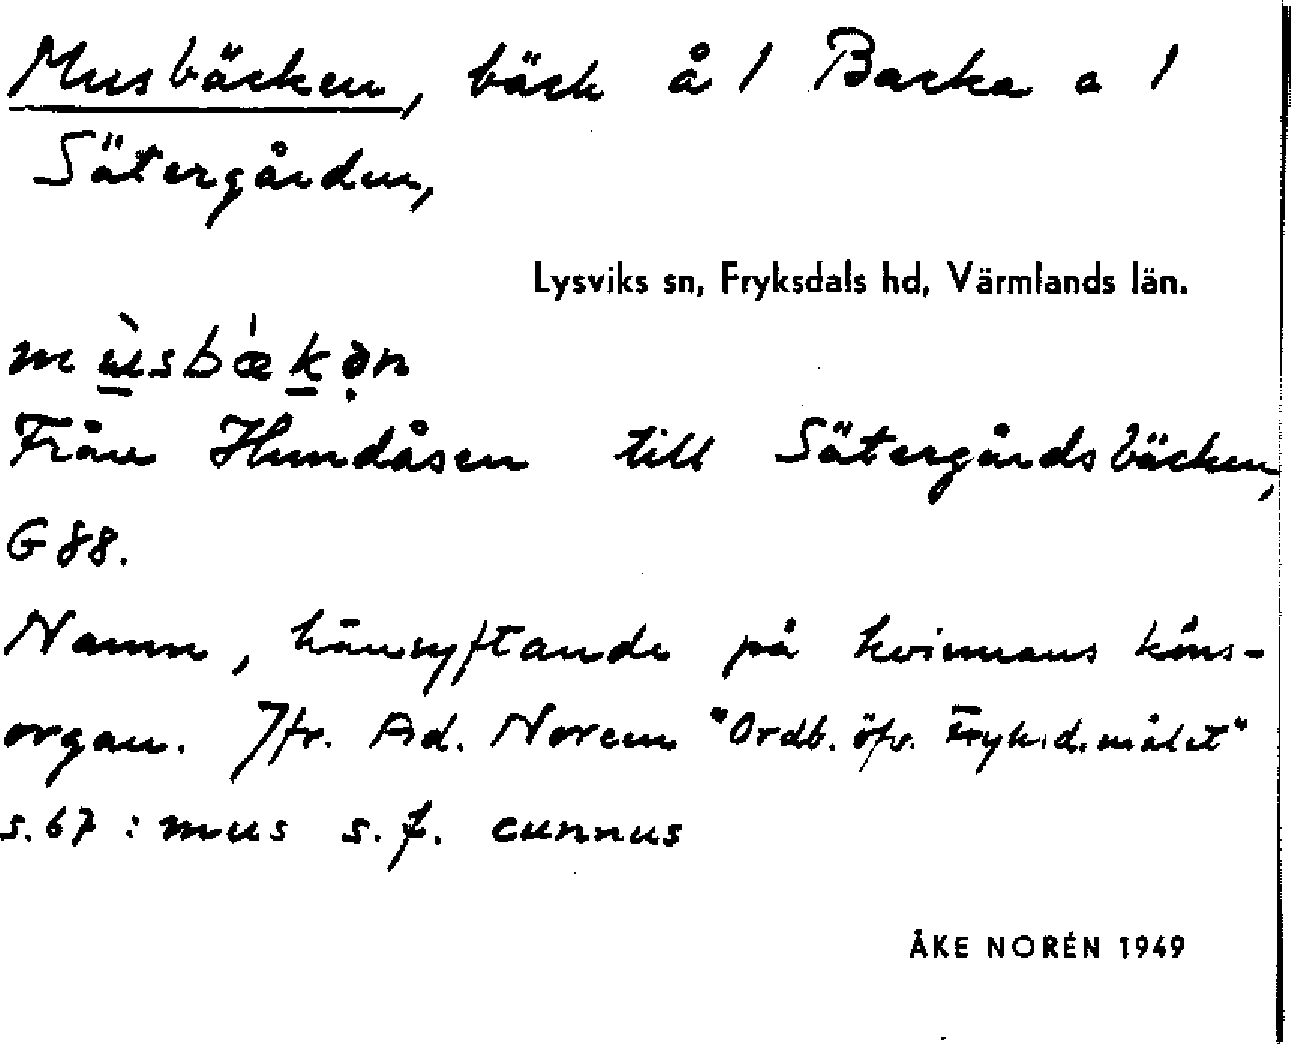 Musbäcken, bäck å 1 Backa o 1
Sätergården,
Lysviks sn, Fryksdals hd, Värmlands län.
mùsbǽkə̣n
Från Hundåsen till Sätergårdsbäcken,
G 88.
Namn, hänsyftande på kvinnans köns-
organ. Jfr. Ad. Noreen "Ordb. öfv. Fryksd.målet"
s. 67 : mus s. f. cunnus
ÅKE NORÉN 1949